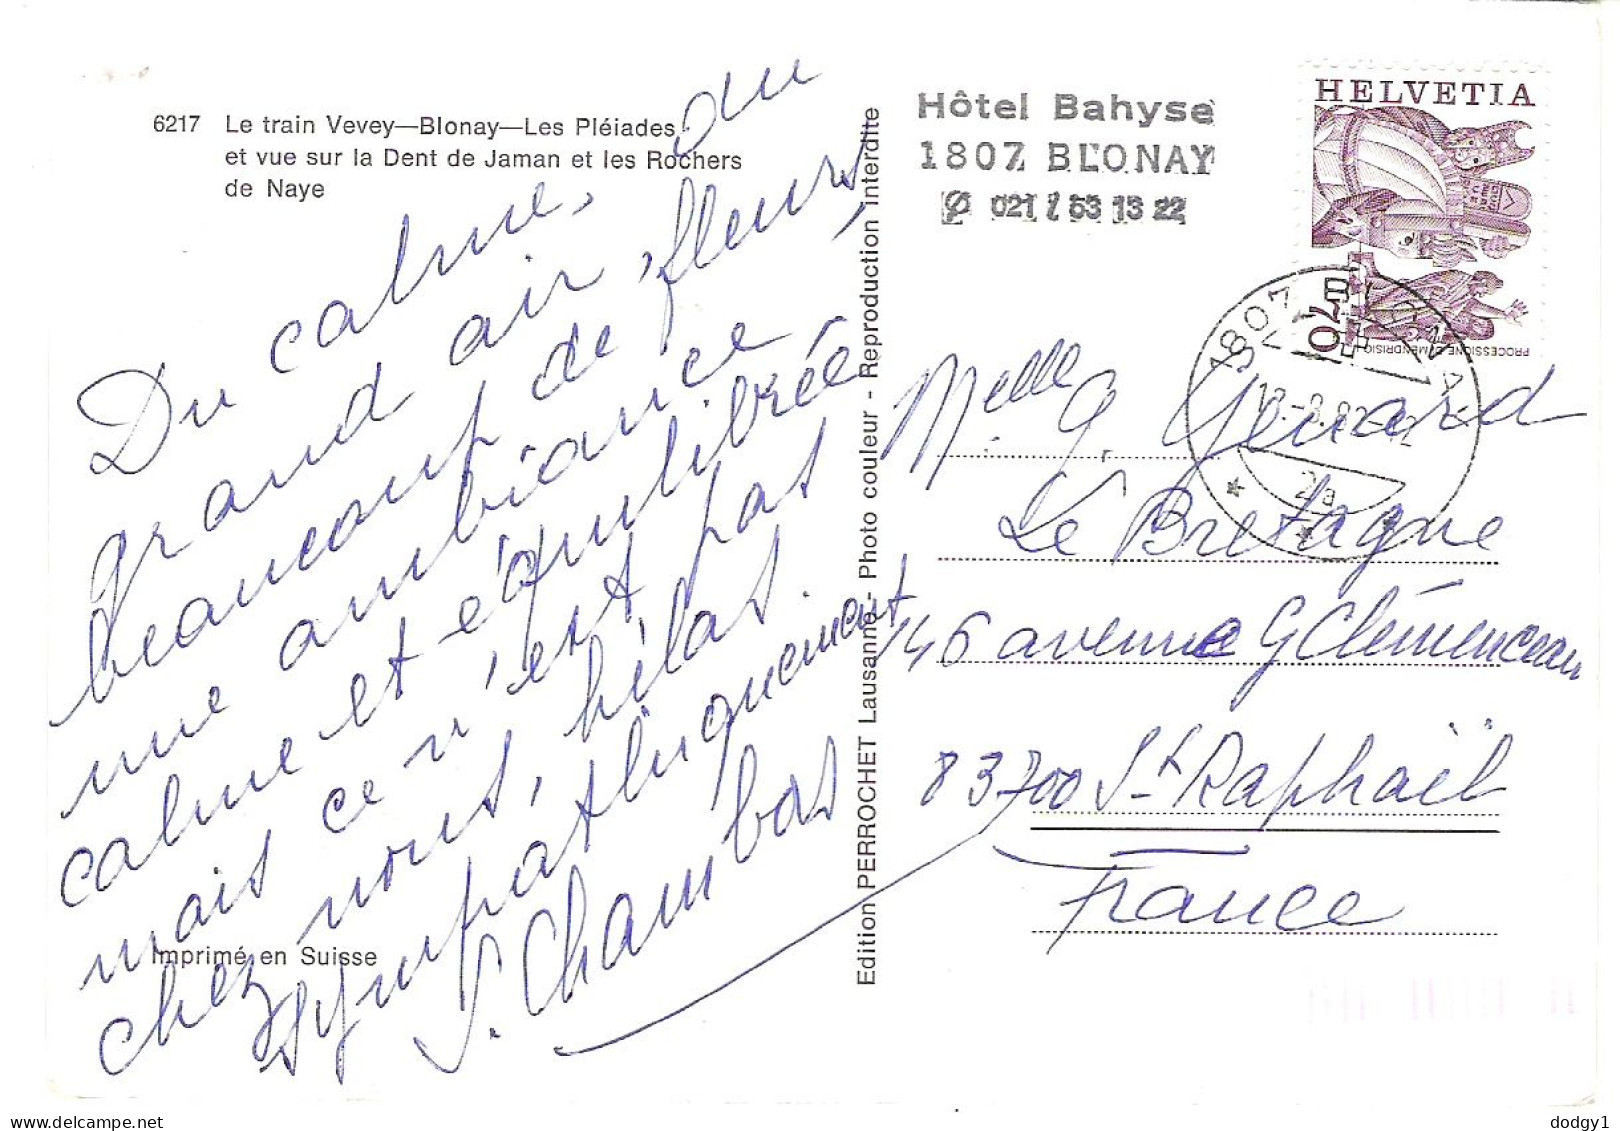 6217 Le train Vevey—Blonay—Les Pléiades
et vue sur la Dent de Jaman et les Rochers
de Naye
Du calme, du
grand air, fleurs,
beaucoup de
une ambiance
calme et équilibrée
mais ce n'est pas
chez nous, hélas
sympathiquement
S. Chambas
Imprimé en Suisse
Edition PERROCHET Lausanne - Photo couleur - Reproduction interdite
Hôtel Bahyse
1807 BLONAY
021 / 53 13 22
HELVETIA
70
PROCESSIONE DI MENDRISIO
1807 BLONAY
2a
Melle G. Genard
Le Bretagne
146 avenue G Clémenceau
83700 St Raphaël
France
dodgy1